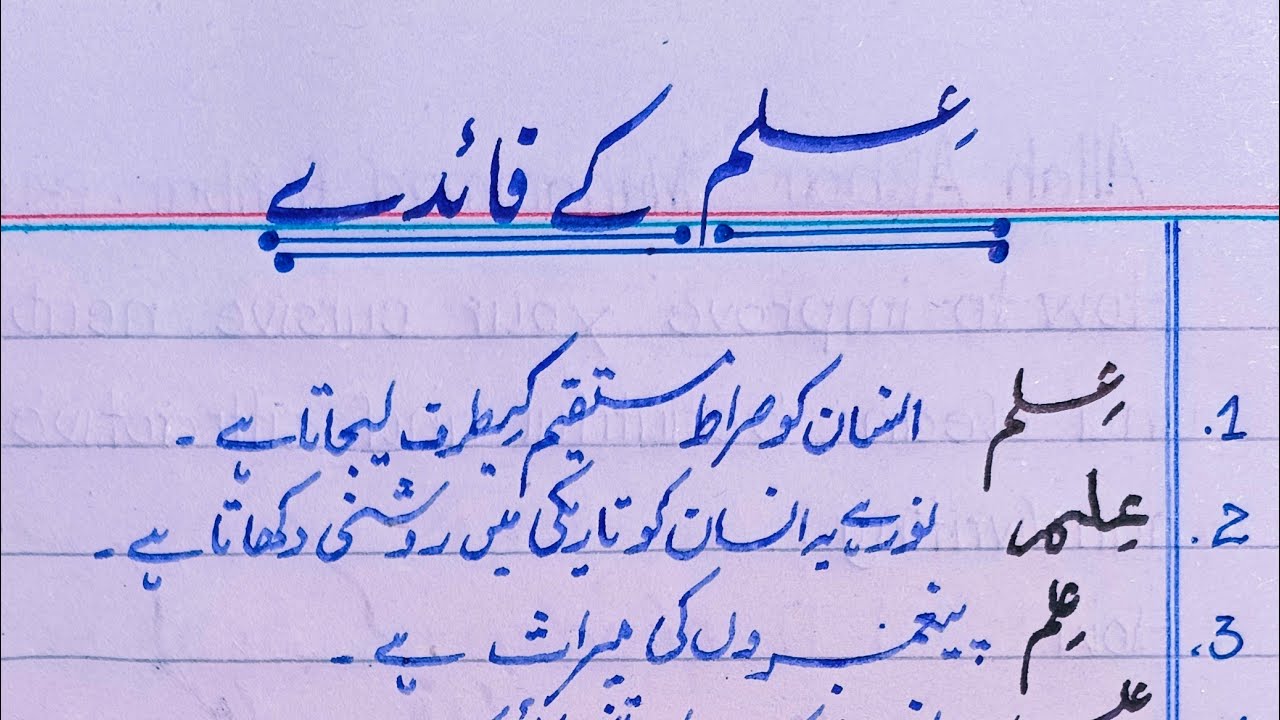 عِلم کے فائدے
1. عِلم انسان کو صراط مستقیم کیطرف لیجاتا ہے۔
2. عِلم نور ہے یہ انسان کو تاریکی میں روشنی دکھاتا ہے۔
3. عِلم پیغمبروں کی میراث ہے۔
علم